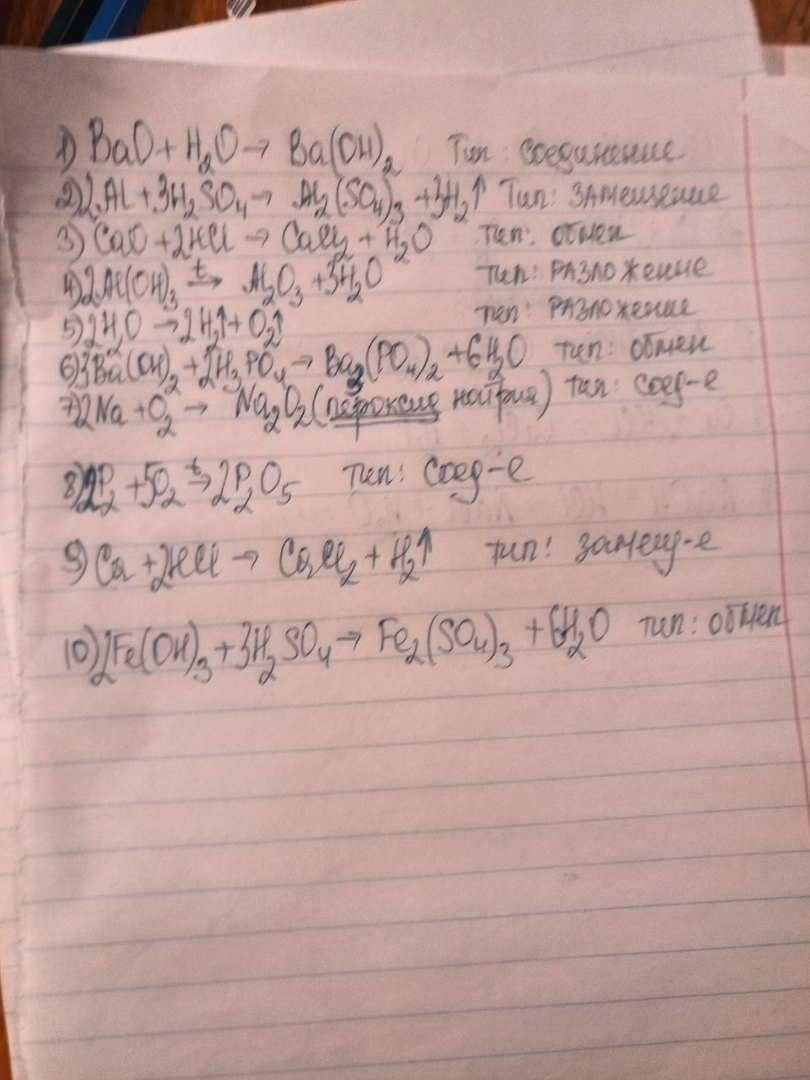 1) BaO + H₂O → Ba(OH)₂ Тип: соединение
2) 2Al + 3H₂SO₄ → Al₂(SO₄)₃ + 3H₂↑ Тип: замещение
3) CaO + 2HCl → CaCl₂ + H₂O тип: обмен
4) 2Al(OH)₃ t→ Al₂O₃ + 3H₂O тип: разложение
5) 2H₂O → 2H₂↑ + O₂↑ тип: разложение
6) 3Ba(OH)₂ + 2H₃PO₄ → Ba₃(PO₄)₂ + 6H₂O тип: обмен
7) 2Na + O₂ → Na₂O₂ (пероксид натрия) тип: соед-е
8) 2P₂ + 5O₂ t→ 2P₂O₅ тип: соед-е
9) Ca + 2HCl → CaCl₂ + H₂↑ тип: замещ-е
10) 2Fe(OH)₃ + 3H₂SO₄ → Fe₂(SO₄)₃ + 6H₂O тип: обмен